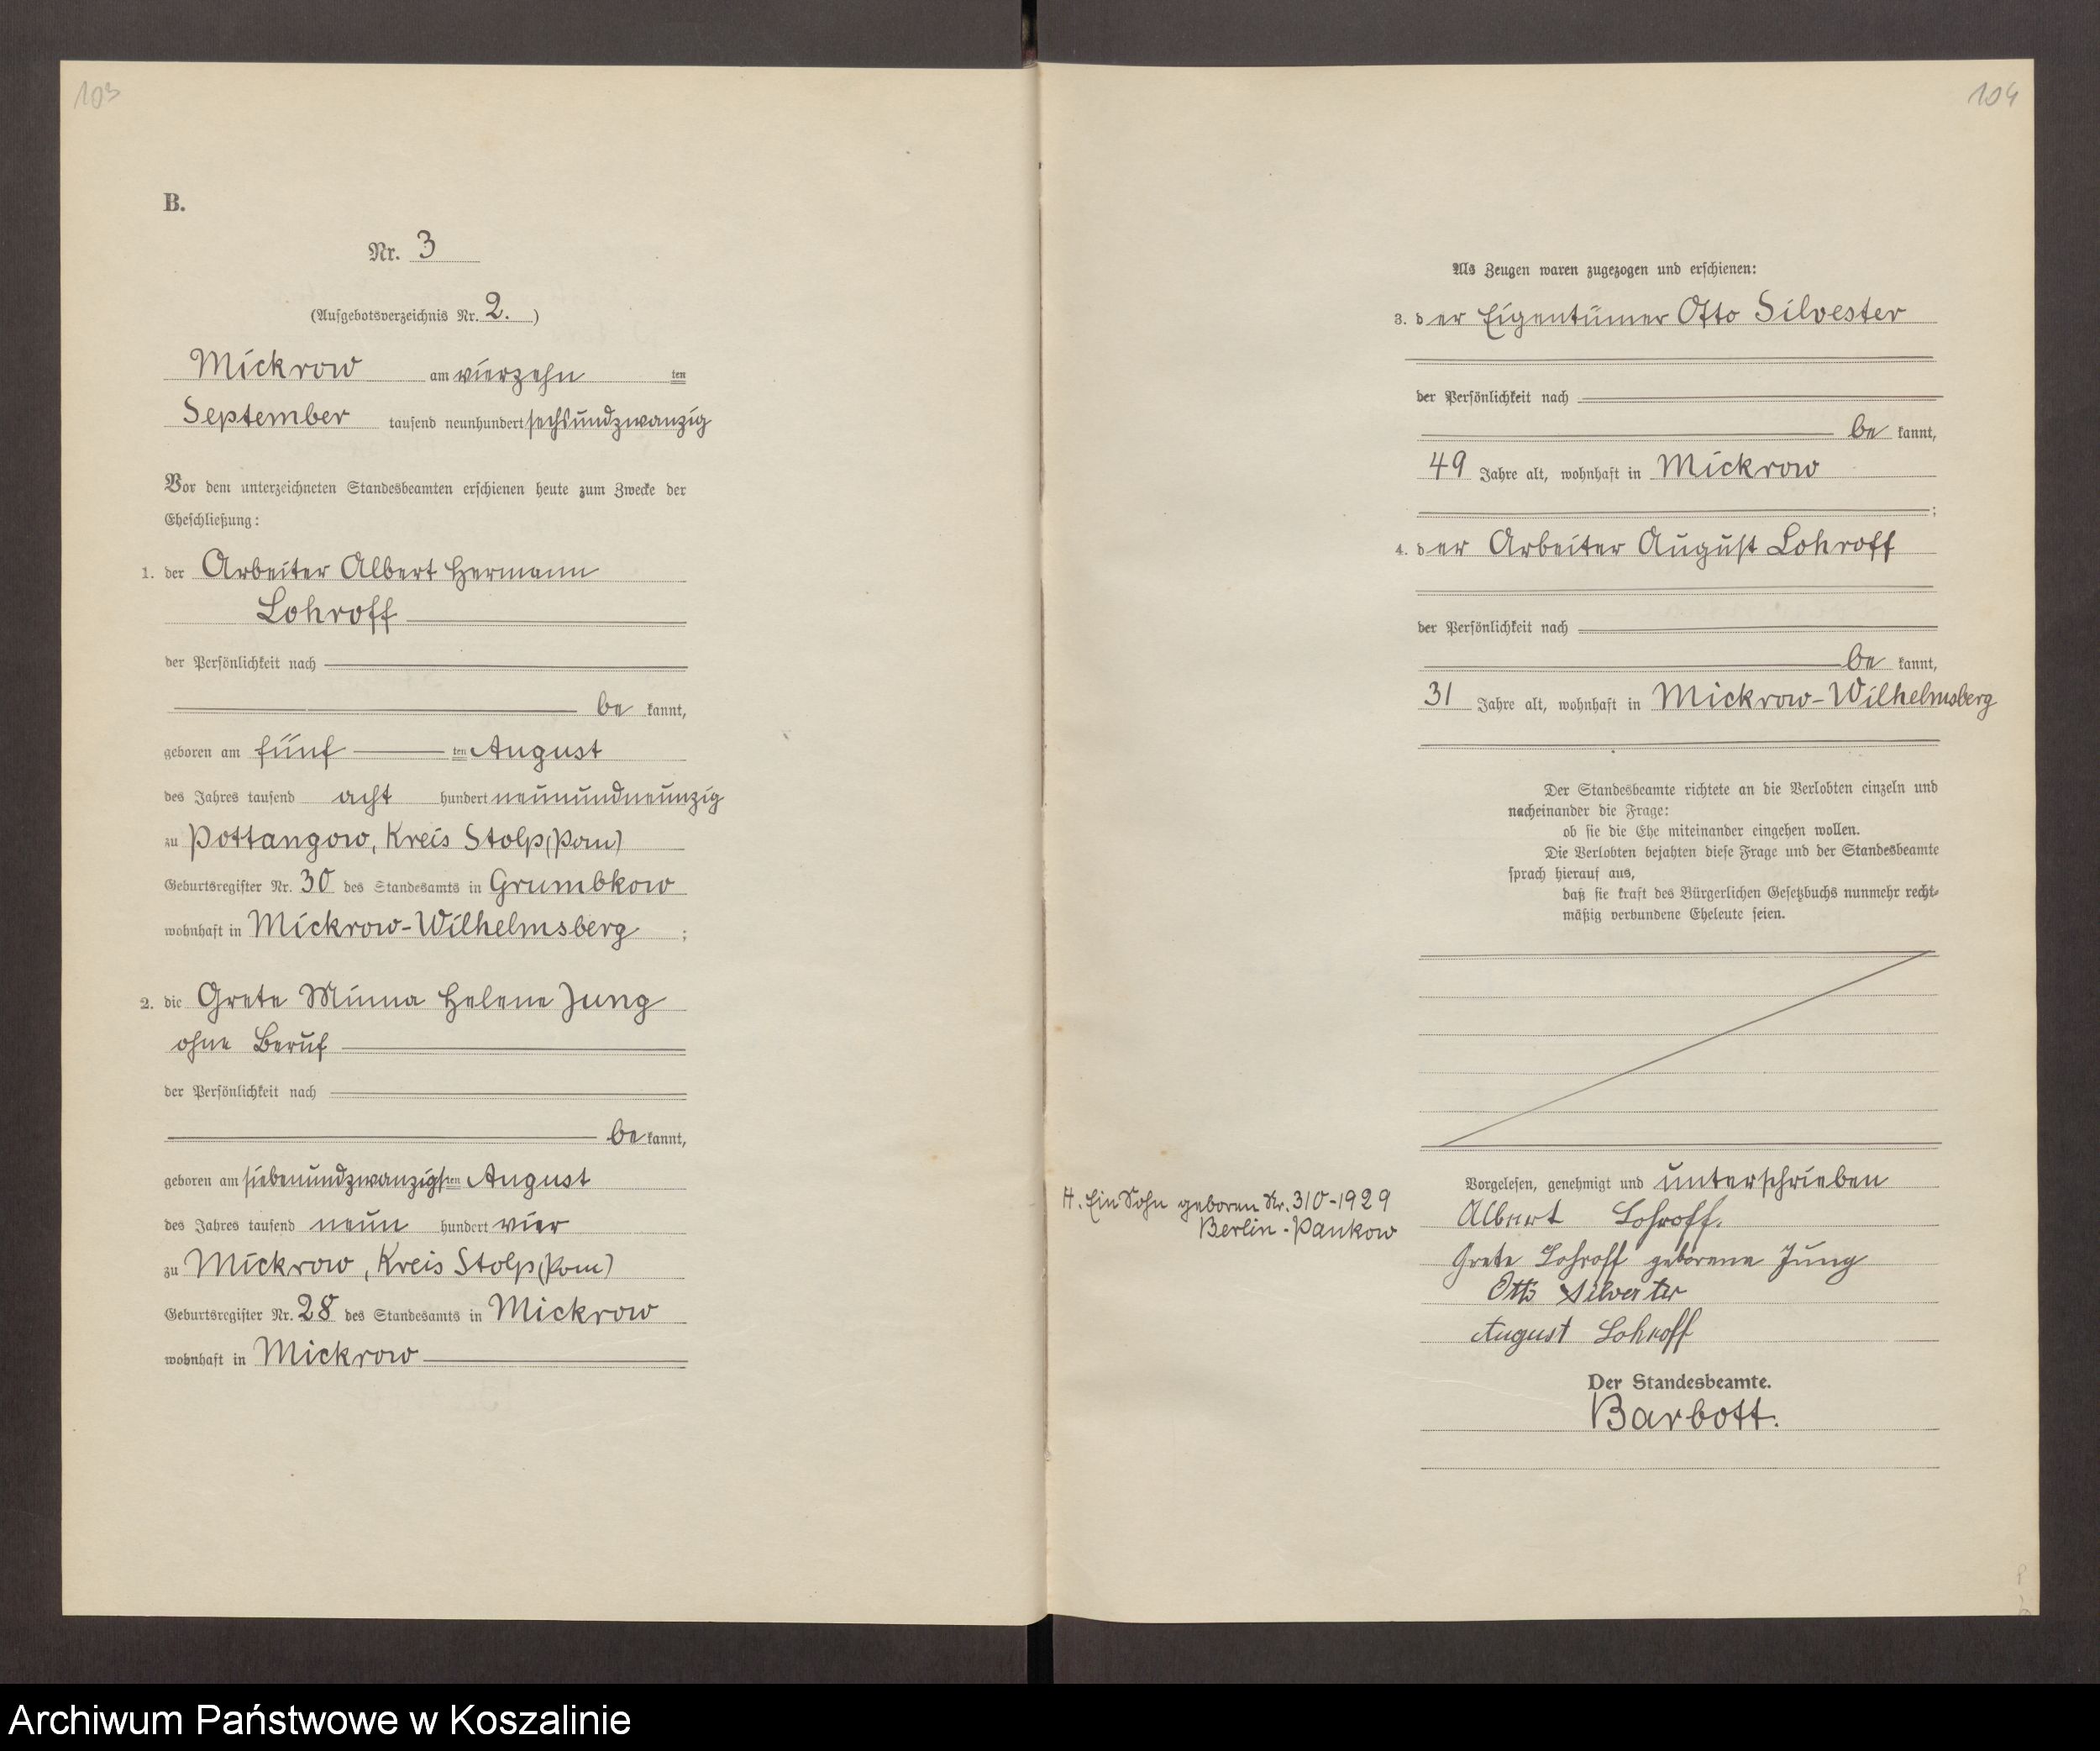 103
B.
Nr. 3
(Aufgebotsverzeichnis Nr. 2. )
Mickrow am vierzehn ten
September tausend neunhundert sechsundzwanzig
Vor dem unterzeichneten Standesbeamten erschienen heute zum Zwecke der
Eheschließung:
1. der Arbeiter Albert Hermann
Lohroff
der Persönlichkeit nach
be kannt,
geboren am fünf ten August
des Jahres tausend acht hundert neunundneunzig
zu Pottangow, Kreis Stolp (Pom)
Geburtsregister Nr. 30 des Standesamts in Grumbkow
wohnhaft in Mickrow-Wilhelmsberg ;
2. die Grete Minna Helene Jung
ohne Beruf
der Persönlichkeit nach
be kannt,
geboren am siebenundzwanzigsten August
des Jahres tausend neun hundert vier
zu Mickrow, Kreis Stolp (Pom)
Geburtsregister Nr. 28 des Standesamts in Mickrow
wohnhaft in Mickrow
104
Als Zeugen waren zugezogen und erschienen:
3. der Eigentümer Otto Silvester
der Persönlichkeit nach
be kannt,
49 Jahre alt, wohnhaft in Mickrow
;
4. der Arbeiter August Lohroff
der Persönlichkeit nach
be kannt,
31 Jahre alt, wohnhaft in Mickrow-Wilhelmsberg
Der Standesbeamte richtete an die Verlobten einzeln und
nacheinander die Frage:
ob sie die Ehe miteinander eingehen wollen.
Die Verlobten bejahten diese Frage und der Standesbeamte
sprach hierauf aus,
daß sie kraft des Bürgerlichen Gesetzbuchs nunmehr recht-
mäßig verbundene Eheleute seien.
Vorgelesen, genehmigt und unterschrieben
Albert Lohroff.
Grete Lohroff geborene Jung
Otto Silvester
August Lohroff
Der Standesbeamte.
Barbott.
H. Ein Sohn geboren Nr. 310-1929
Berlin-Pankow
Archiwum Państwowe w Koszalinie